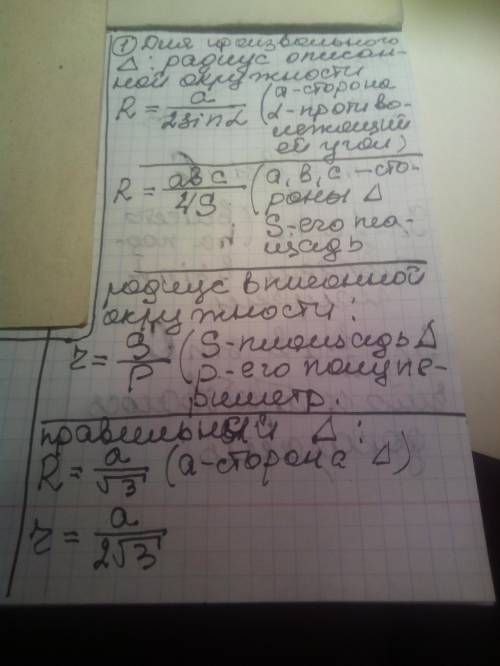 ① Для произвольного
Δ: радиус описан-
ной окружности
R = a/2sinα (a-сторона
α-противо-
лежащий
ей угол)
R = abc/4S (a, b, c – сто-
роны Δ
S-его пло-
щадь
радиус вписанной
окружности:
r = S/p (S-площадь Δ
p-его полупе-
риметр.
правильный Δ:
R = a/√3 (a-сторона Δ)
r = a/2√3